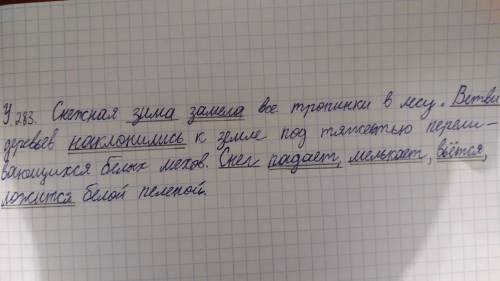 У.283. Снежная зима замела все тропинки в лесу. Ветви
деревьев наклонились к земле под тяжестью перели-
вающихся белых мехов. Снег падает, мелькает, вьётся,
ложится белой пеленой.